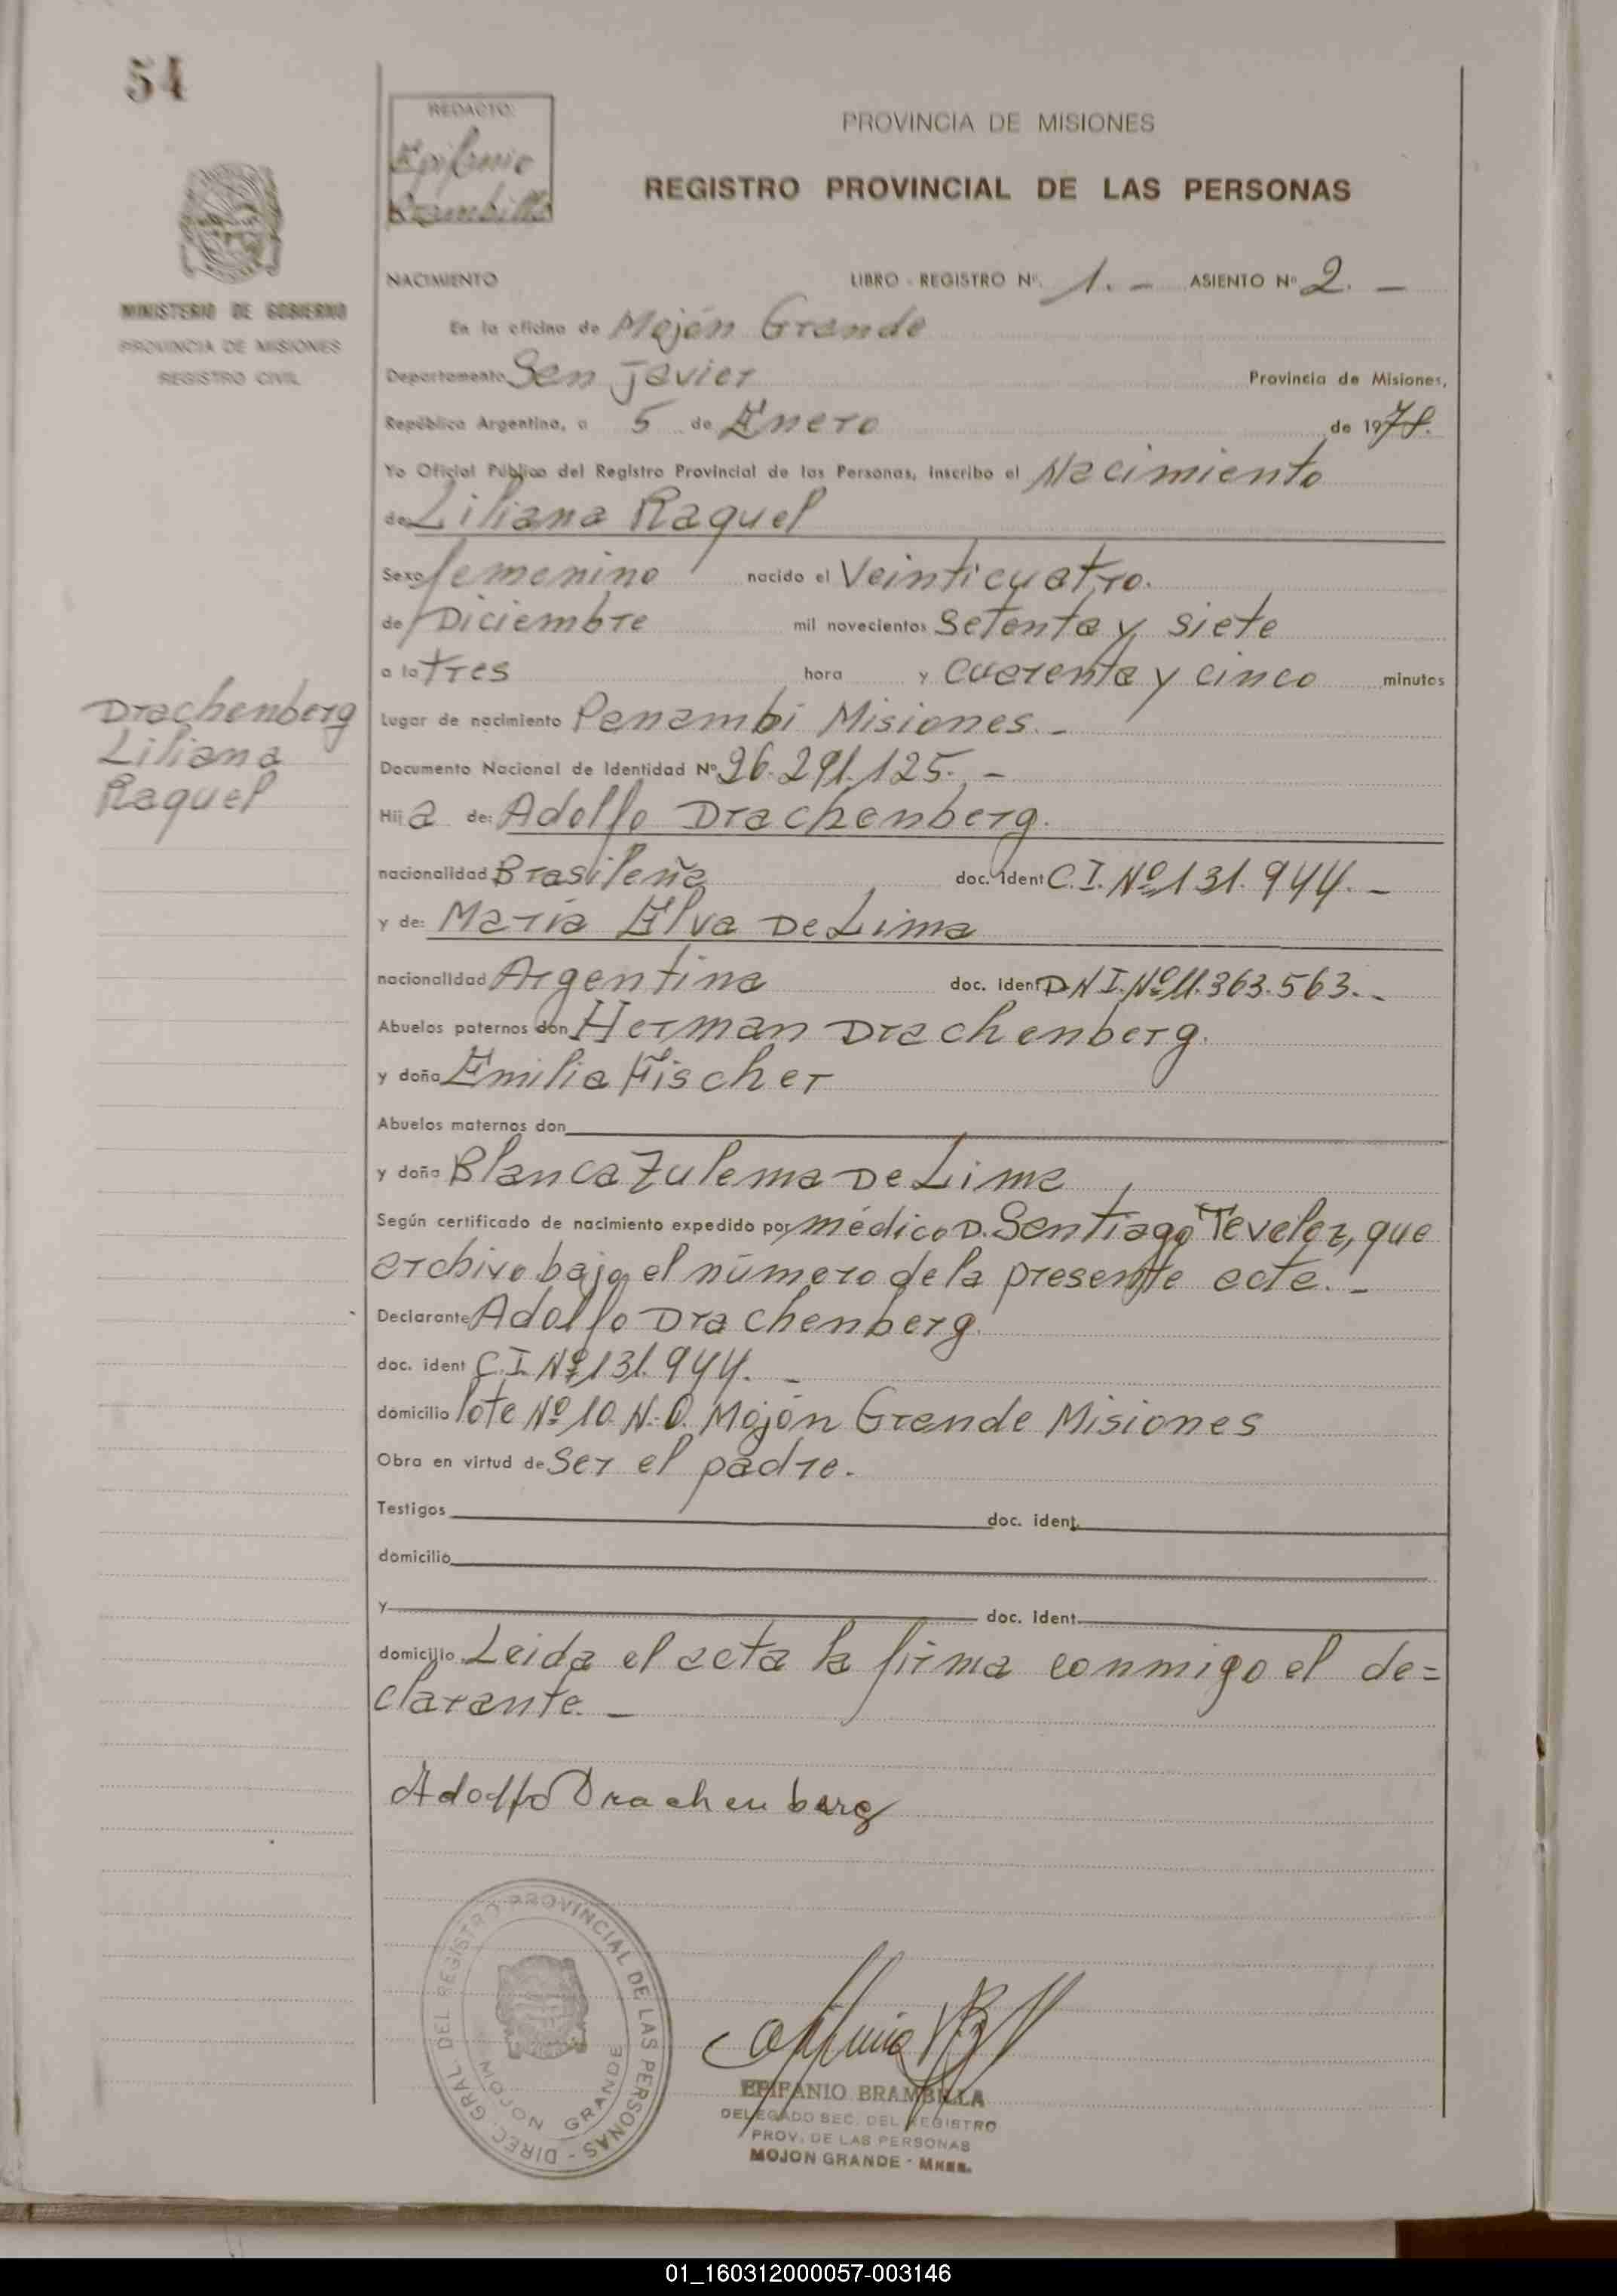 54
REDACTO:
Epifanio
Brambilla
PROVINCIA DE MISIONES
REGISTRO PROVINCIAL DE LAS PERSONAS
MINISTERIO DE GOBIERNO
PROVINCIA DE MISIONES
REGISTRO CIVIL
NACIMIENTO LIBRO - REGISTRO Nº. 1. - ASIENTO Nº 2. -
En la oficina de Mojón Grande
Departamento San Javier Provincia de Misiones,
República Argentina, a 5 de Enero de 1978.
Yo Oficial Público del Registro Provincial de las Personas, inscribo el Nacimiento
de Liliana Raquel
Sexo femenino nacido el Veinticuatro.
de Diciembre mil novecientos Setenta y siete
a la tres hora y cuarenta y cinco minutos
Drachenberg
Liliana
Raquel
Lugar de nacimiento Panambí Misiones. -
Documento Nacional de Identidad Nº 26.291.125. -
Hij a de: Adolfo Drachenberg.
nacionalidad Brasileña doc. ident C.I. Nº 131.944. -
y de: María Elva De Lima
nacionalidad Argentina doc. ident D.N.I. Nº 11.363.563. -
Abuelos paternos don Herman Drachenberg.
y doña Emilia Fischer
Abuelos maternos don
y doña Blanca Zulema De Lima
Según certificado de nacimiento expedido por médico D. Santiago Tevelez, que
archivo bajo el número de la presente acta. -
Declarante Adolfo Drachenberg.
doc. ident C.I. Nº 131.944. -
domicilio lote Nº 10. N.O. Mojón Grande Misiones
Obra en virtud de Ser el padre.
Testigos doc. ident.
domicilio
y doc. ident.
domicilio. Leida el acta la firma conmigo el de=
clarante. -
Adolfo Drachenberg
DIREC. GRAL. DEL REGISTRO PROVINCIAL DE LAS PERSONAS -
MOJON GRANDE
EPIFANIO BRAMBILLA
DELEGADO SEC. DEL REGISTRO
PROV. DE LAS PERSONAS
MOJON GRANDE - MNES.
01_160312000057-003146